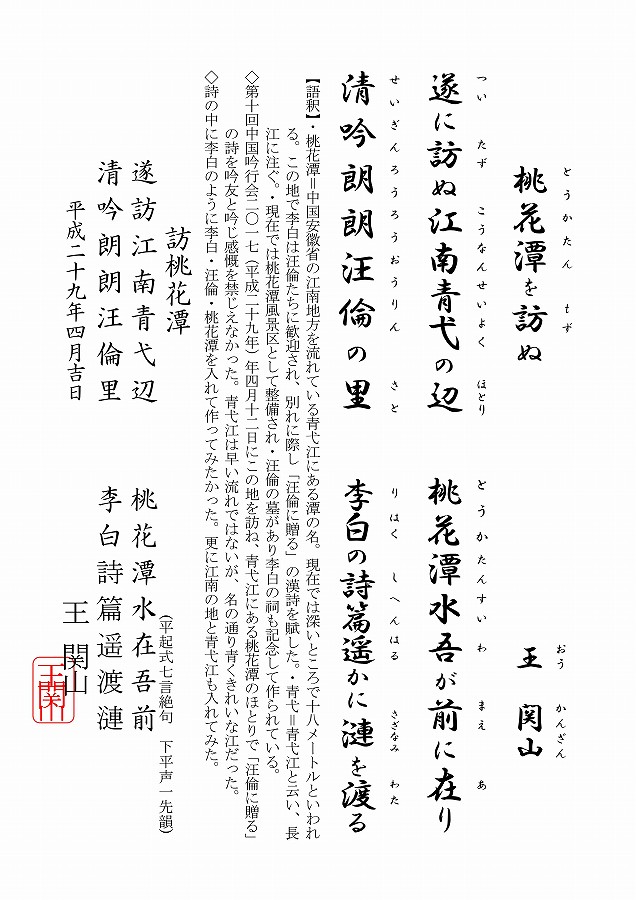 とうかたん　とず
桃花潭を訪ぬ
おう　かんざん
王　関山
つい　たず　こうなんせいよく　ほとり
遂に訪ぬ江南青弋の辺
とうかたんすい　わ　まえ　あ
桃花潭水吾が前に在り
せいぎんろうろうおうりん　さと
清吟朗朗汪倫の里
りはく　しへんはる　さざなみ　わた
李白の詩篇遥かに漣を渡る
【語釈】・桃花潭＝中国安徽省の江南地方を流れている青弋江にある潭の名。現在では深いところで十八メートルといわれ
る。この地で李白は汪倫たちに歓迎され、別れに際し「汪倫に贈る」の漢詩を賦した。・青弋＝青弋江と云い、長
江に注ぐ。・現在では桃花潭風景区として整備され・汪倫の墓があり李白の祠も記念して作られている。
◇第十回中国吟行会二〇一七（平成二十九年）年四月十二日にこの地を訪ね、青弋江にある桃花潭のほとりで「汪倫に贈る」
の詩を吟友と吟じ感慨を禁じえなかった。青弋江は早い流れではないが、名の通り青くきれいな江だった。
◇詩の中に李白のように李白・汪倫・桃花潭を入れて作ってみたかった。更に江南の地と青弋江も入れてみた。
訪桃花潭
（平起式七言絶句　下平声一先韻）
遂訪江南青弋辺　桃花潭水在吾前
清吟朗朗汪倫里　李白詩篇遥渡漣
平成二十九年四月吉日
王 関山
王関山